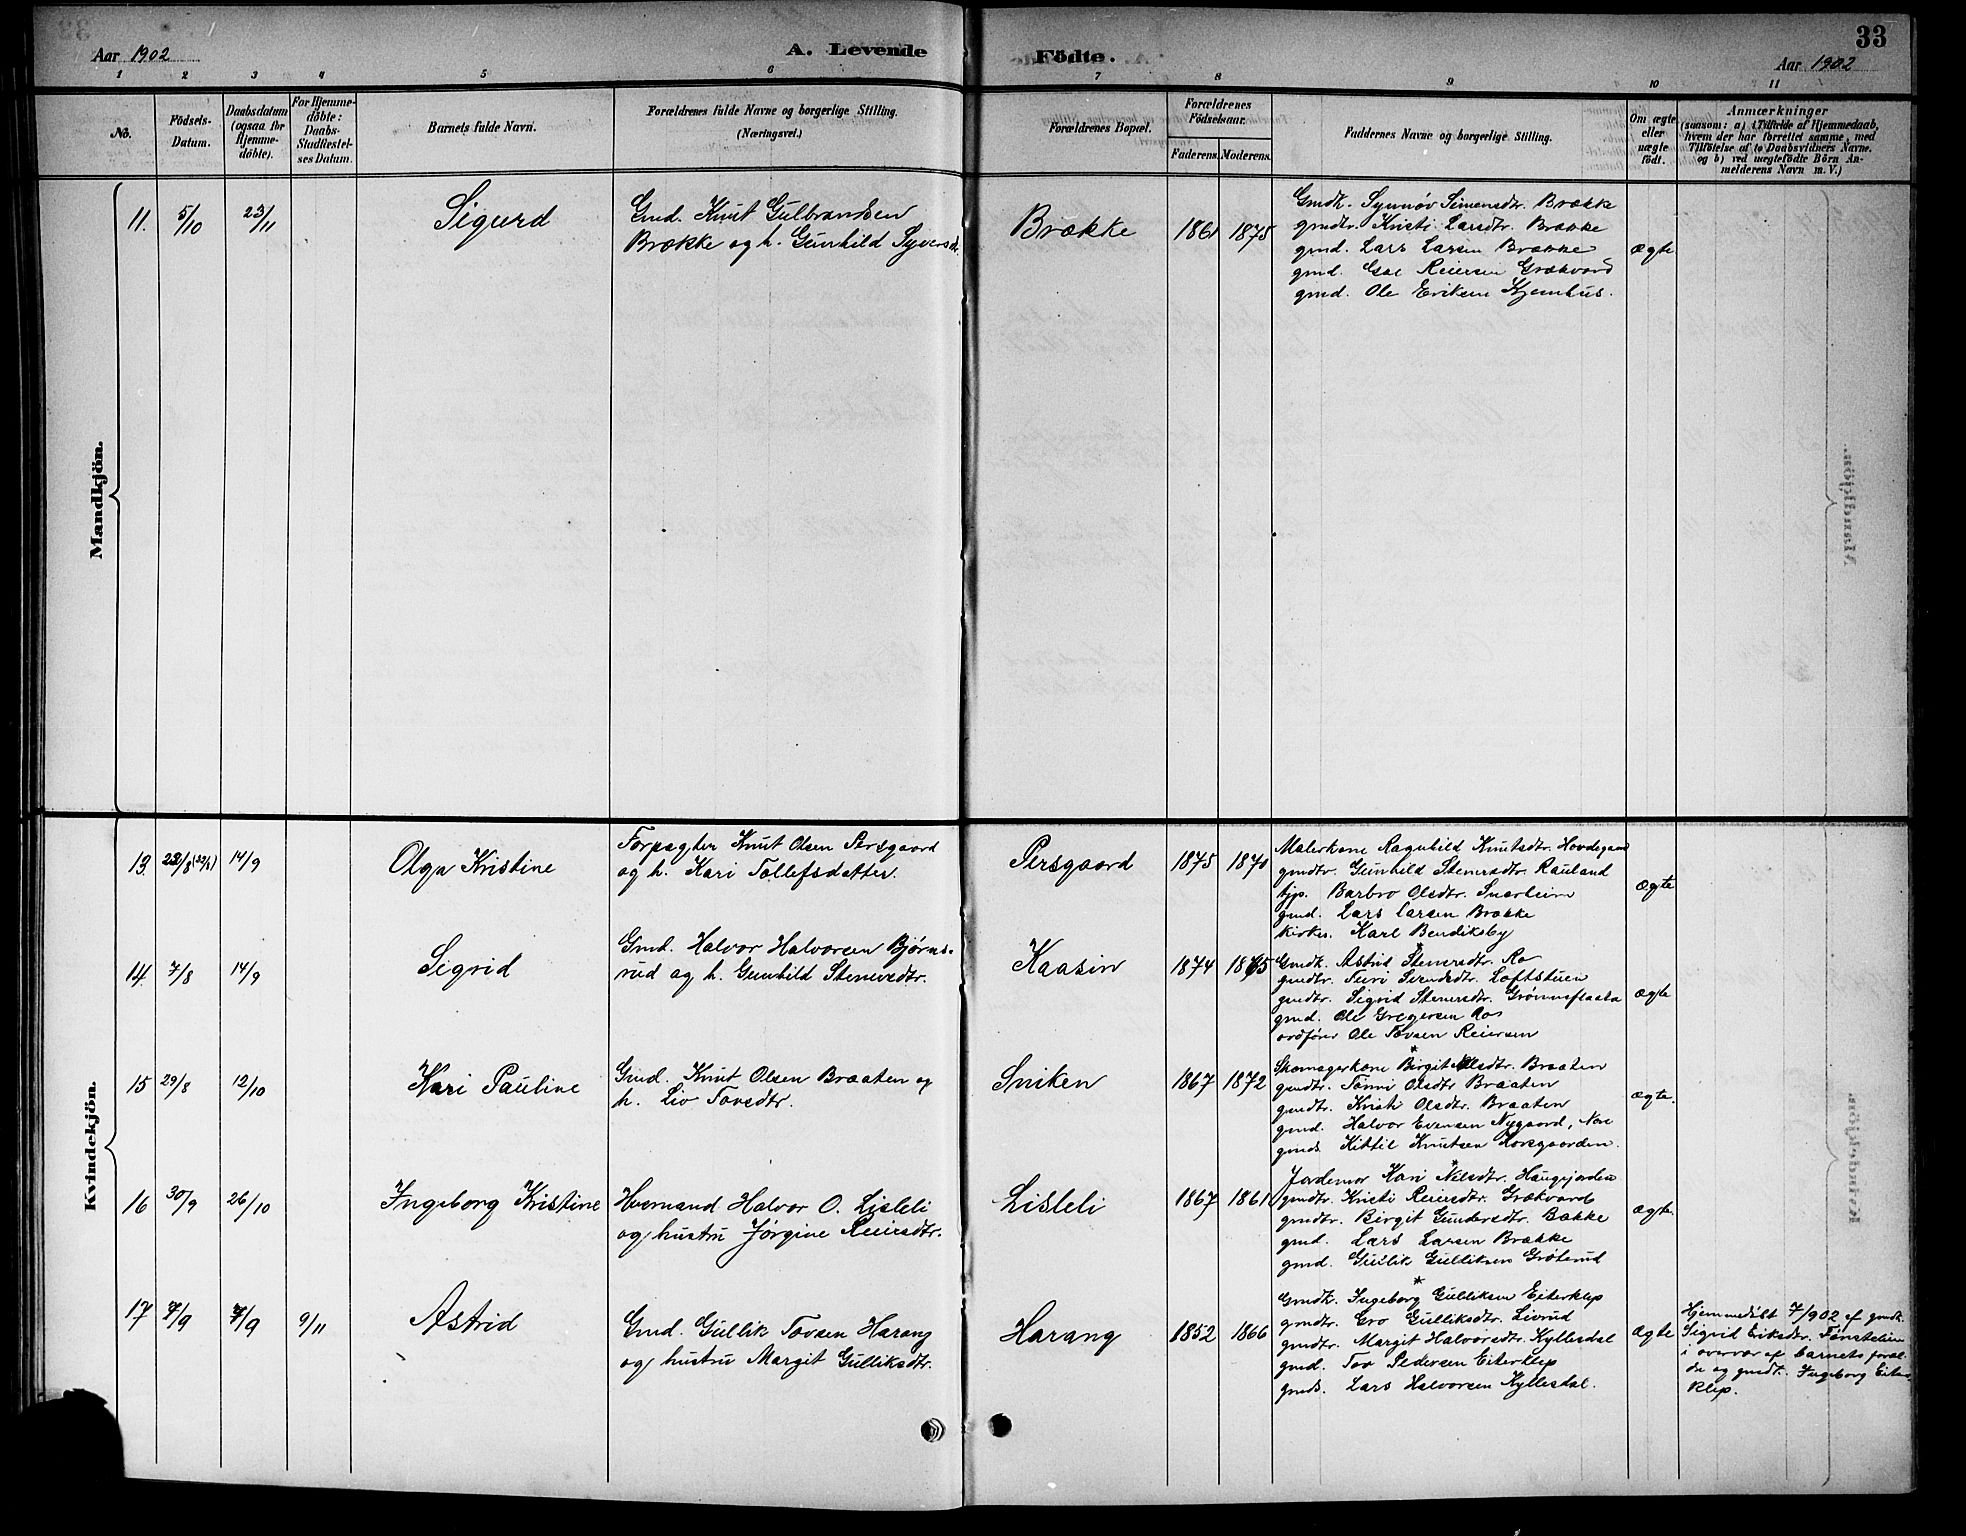 33
Aar 1902
A. Levende
Fødte.
Aar 1902
1 2 3 4 5 6 7 8 9 10 11
No.
Födsels-
Datum.
Daabsdatum
(ogsaa for
Hjemme-
døbte).
For Hjemme-
døbte:
Daabs-
Stadfæstel-
ses Datum.
Barnets fulde Navn.
Forældrenes fulde Navne og borgerlige Stilling.
(Næringsvei.)
Forældrenes Bopæl.
Forældrenes
Födselsaar.
Faderens. Moderens.
Faddernes Navne og borgerlige Stilling.
Om ægte
eller
uægte
født.
Anmærkninger
(saasom: a) i Tilfælde af Hjemmedaab,
hvem der har forrettet samme, med
Tilföielse af to Daabsvidners Navne.
og b) ved uægtefödte Börn An-
melderens Navn m. V.)
Mandkjön.
11. 5/10 23/11
Sigurd
Gmd. Knut Gulbrandsen
Brække og h. Gunhild Syversd.
Brække
1861 1875
Gmdk. Synnøv Simensdtr. Brække
gmdtr. Kristi Larsdtr. Brække
gmd. Lars Larsen Brække
gmd. Reiersen Grækvard
gmd. Ole Eriksen Kjemhus.
ægte
Kvindekjön.
13. 22/8 (22/8) 14/9
Olga Kristine
Forpagter Knut Olsen Persgaard
og h. Kari Tollefsdatter.
Persgaard
1875 1870
Malerkone Ragnhild Knutsdtr. Hovdegaard
gmdtr. Gunhild Stenersdtr. Rauland
tjp. Barbro Olsdtr. Snarheim
gmd. Lars Larsen Brække
kirkes. Karl Bendiksby
ægte
14. 7/8 14/9
Sigrid
Gmd. Halvor Halvorsen Bjørns-
rud og h. Gunhild Stenersdtr.
Kaasin
1874 1875
Gmdk. Astrid Stenersdtr. Ro
gmdtr. Turi Svendsdtr. Loftstuen
gmdtr. Sigrid Stenersdtr. Grønneflaata
gmd. Ole Gregersen Ro
ordfører Ole Tovsen Reiersen
ægte
15 29/8 12/10
Kari Pauline
Gmd. Knut Olsen Braaten og
h. Liv Tovsdtr.
Sniken
1867 1872
Skomagerkone Birgit Olsdtr. Braaten
gmdtr. Tonni Olsdtr Braaten
gmdtr. Kristi Olsdtr. Braaten
gmd. Halvor Evensen Nygaard, Nore
gmd. Kittil Knutsen Korsgaarden.
ægte.
16 30/9 26/10
Ingeborg Kristine
Husmand Halvor O. Lisleli
og hustru Jørgine Reiersdtr.
Lisleli
1867 1861
Jordemor Kari Nilsdtr. Haugejorden
gmdtr. Kristi Reiersdtr. Grækvard
gmdtr. Birgit Gundersdtr. Bakke
gmd. Lars Larsen Brække
gmd. Gullik Gulliksen Grøterud
ægte.
17 7/9 7/9 9/11
Astrid
Gmd. Gullik Tovsen Harang
og hustru Margit Gulliksdtr.
Harang
1852 1866
Gmdk. Ingeborg Gulliksen Eiterklep
gmdtr. Gro Gulliksdtr. Livrud
gmdtr. Margit Halvorsdtr. Kyllesdal
gmd. Tov Pedersen Eiterklep
gmds. Lars Halvorsen Kyllesdal.
ægte
Hjemmedöbt 7/902 af gmdk.
Sigrid Eriksdtr. Fønstelien
i overvær af barnets foræl-
dre og gmdk. Ingeborg Eiter-
klep.